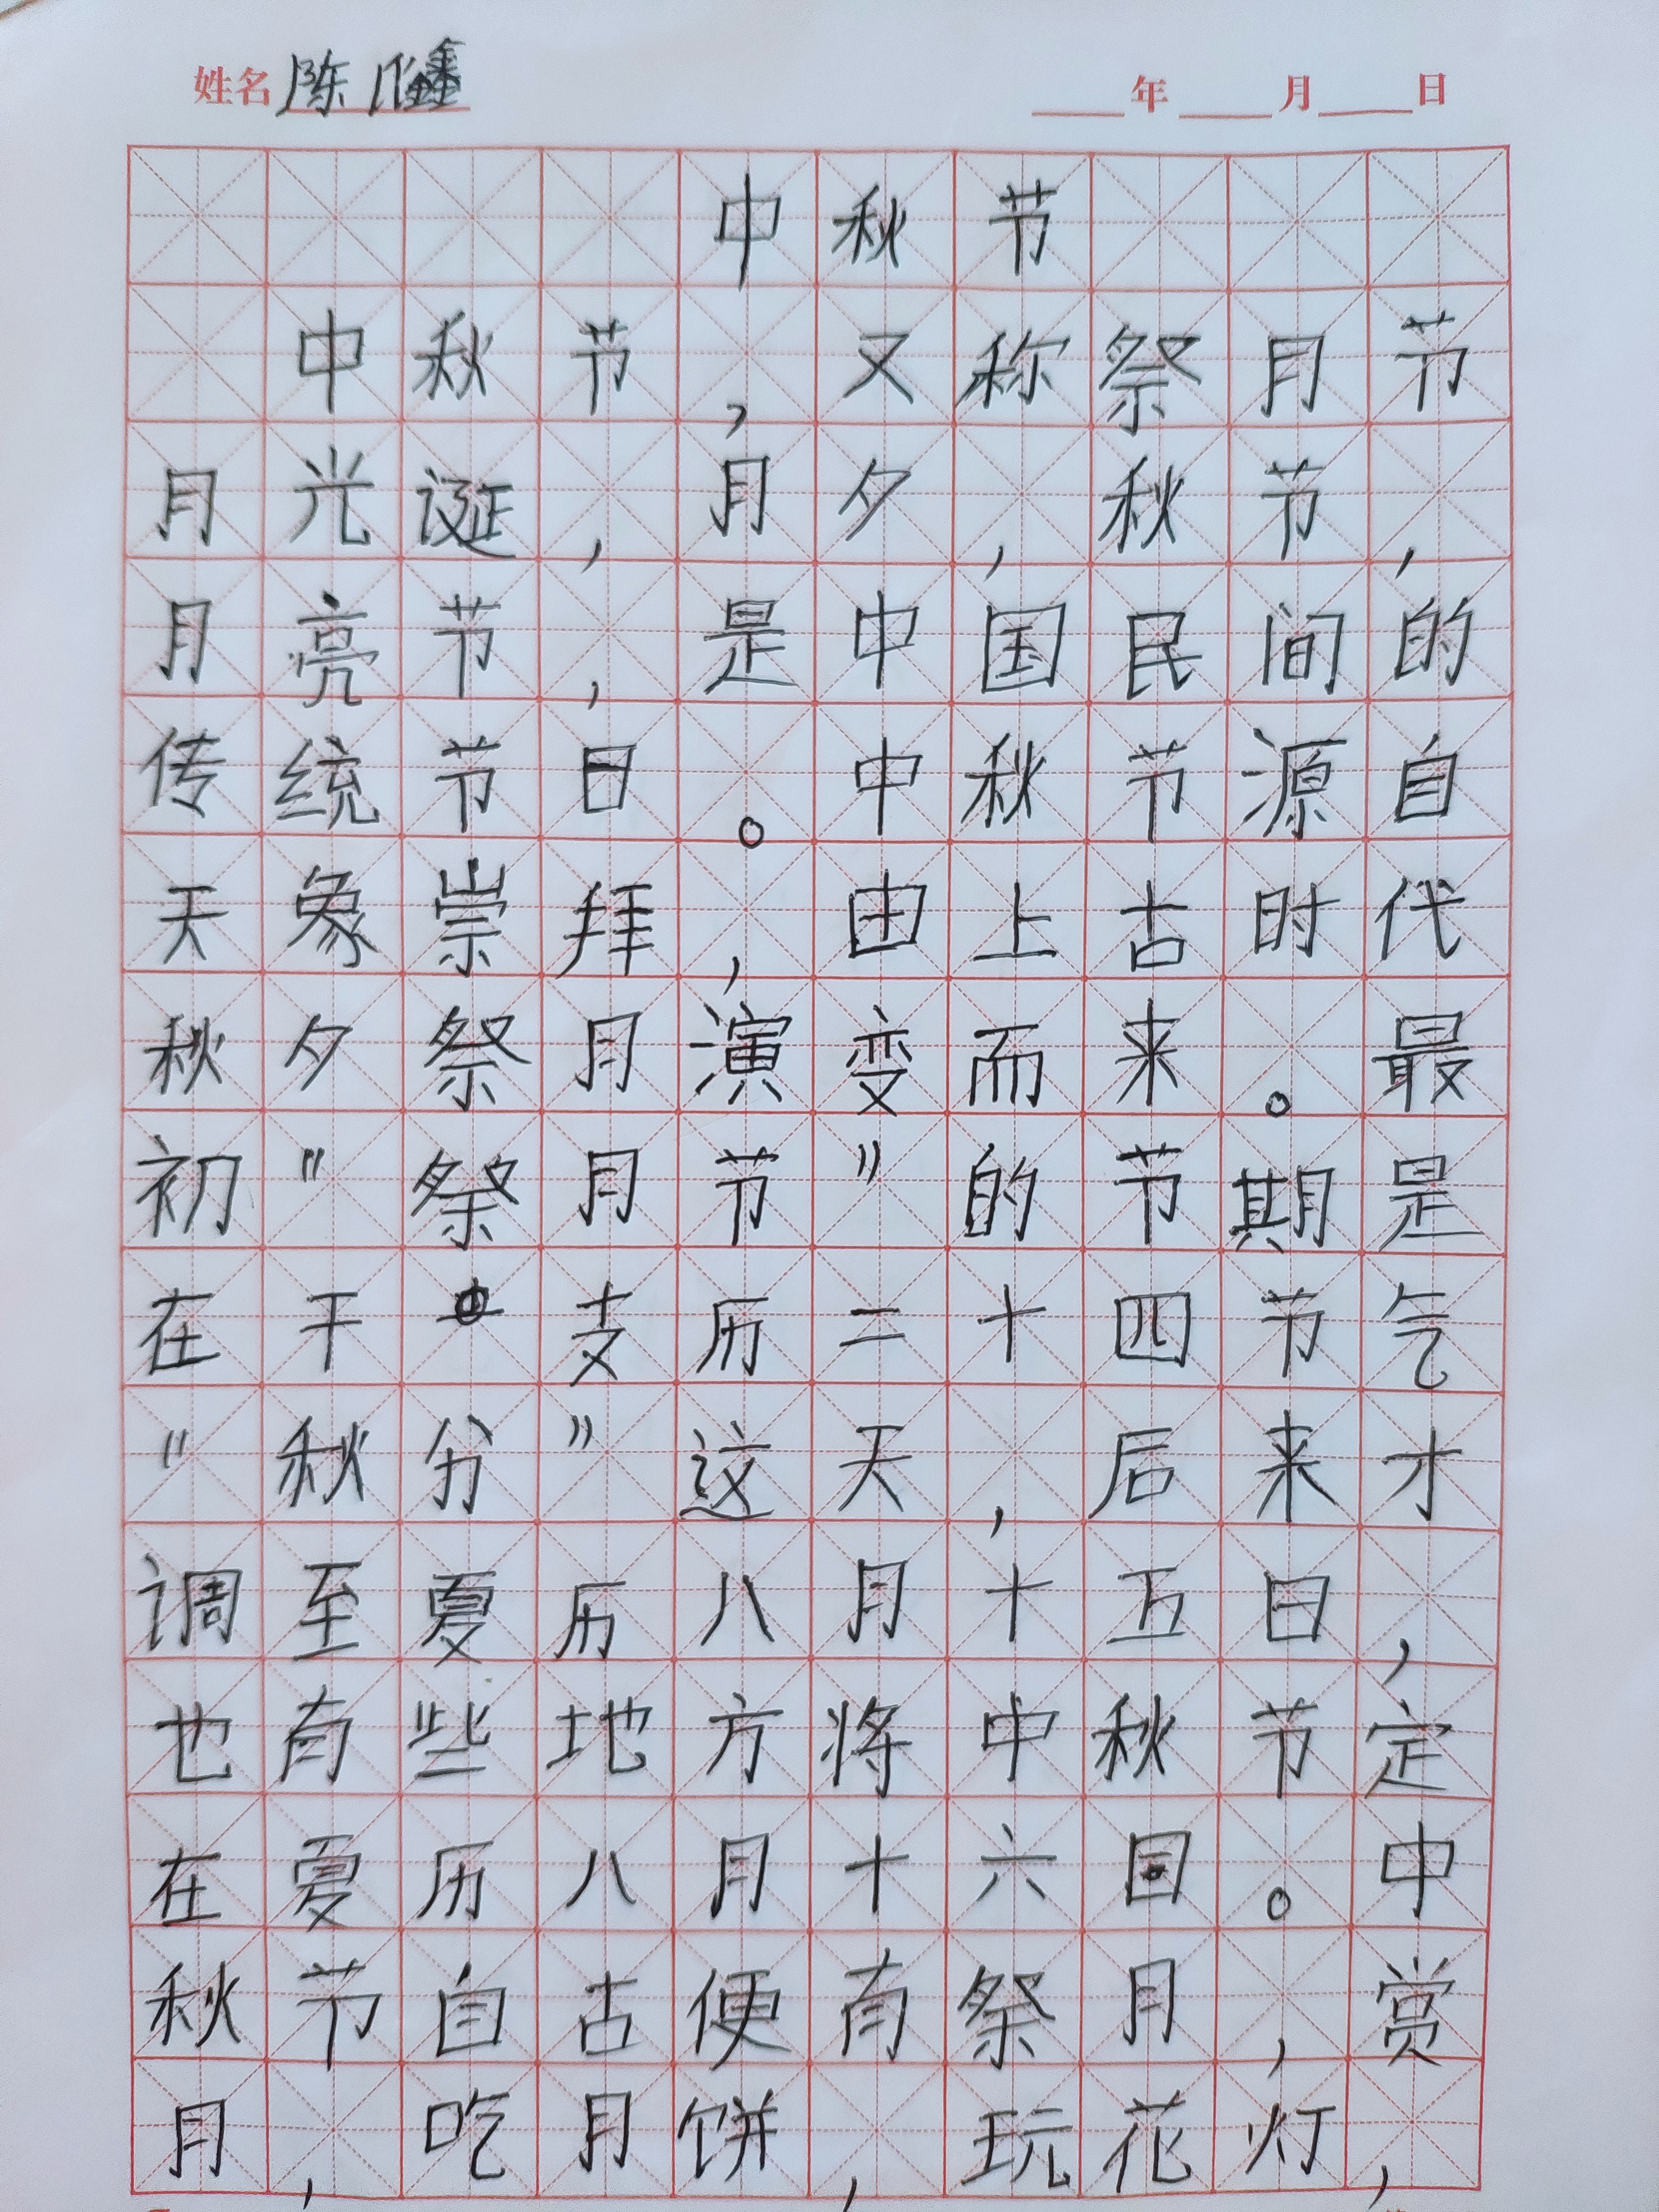 姓名陈 年 月 日
中秋节
中秋节,又称祭月节
月光诞,月夕,秋节,
月亮节,是中国民间的
传统节日。中秋节源自
天象崇拜,由上古时代
秋夕祭月演变而来。最
初"祭月节"的节期是
在干支历二十四节气
"秋分"这天,后来才
调至夏历八月十五日,
也有些地方将中秋节定
在夏历八月十六日。中
秋节自古便有祭月,赏
月,吃月饼,玩花灯,